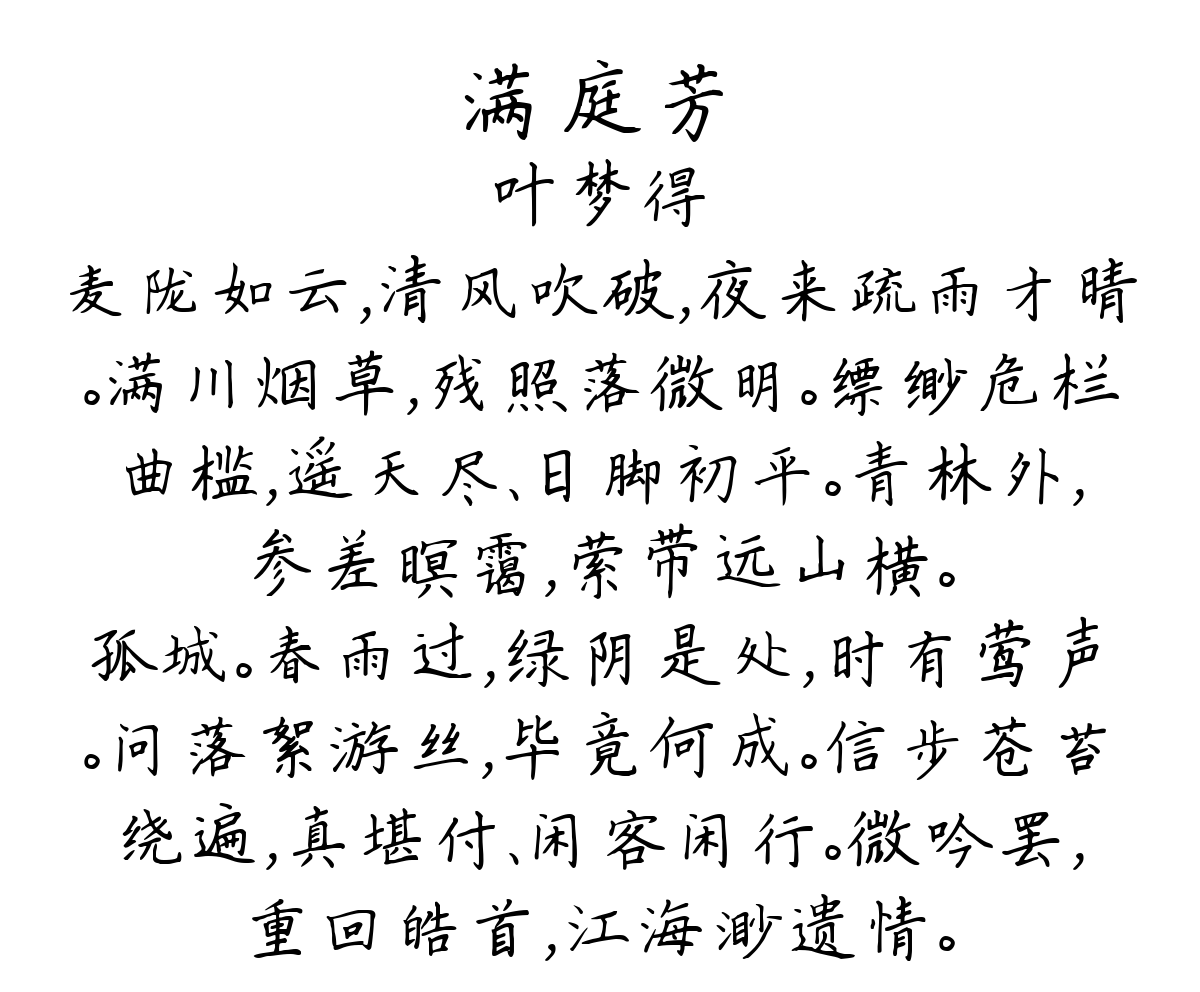 满庭芳
叶梦得
麦陇如云,清风吹破,夜来疏雨才晴
。满川烟草,残照落微明。缥缈危栏
曲槛,遥天尽、日脚初平。青林外,
参差暝霭,萦带远山横。
孤城。春雨过,绿阴是处,时有莺声
。问落絮游丝,毕竟何成。信步苍苔
绕遍,真堪付、闲客闲行。微吟罢,
重回皓首,江海渺遗情。